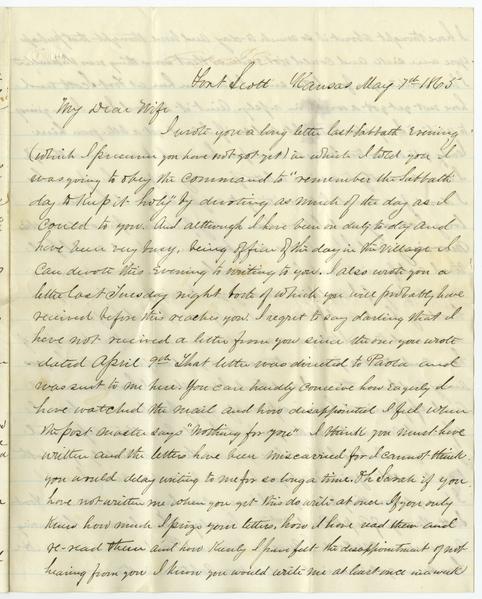 Fort Scott Kansas May 7th 1865
"My Dear Wife
I wrote you a long letter last Sabbath Evening
(which I presume you have not got yet) in which I told you I
was going to obey the command to "remember the Sabbath
day to keep it holy" by devoting as much of the day as I
could to you. And although I have been on duty to day and
have been very busy, being officer of the day in the Village I
can devote this Evening to writing to you. I also wrote you a
letter last Tuesday night both of which you will probably have
received before this reaches you. I regret to say darling that I
have not received a letter from you since the one you wrote
dated April 9th That letter was directed to Paola and
was sent to me here. You can hardly conceive how Eagerly I
have watched the mail and how disappointed I feel when
the post master says "Nothing for you" I think you must have
written and the letters have been miscarried for I cannot think
you would delay writing to me for so long a time. Oh Sarah if you
have not written me, when you get this do write at once If you only
knew how much I prize your letters, how I have read them and
re-read them and how keenly I have felt the disappointment of not
hearing from you I know you would write me at least once in a week